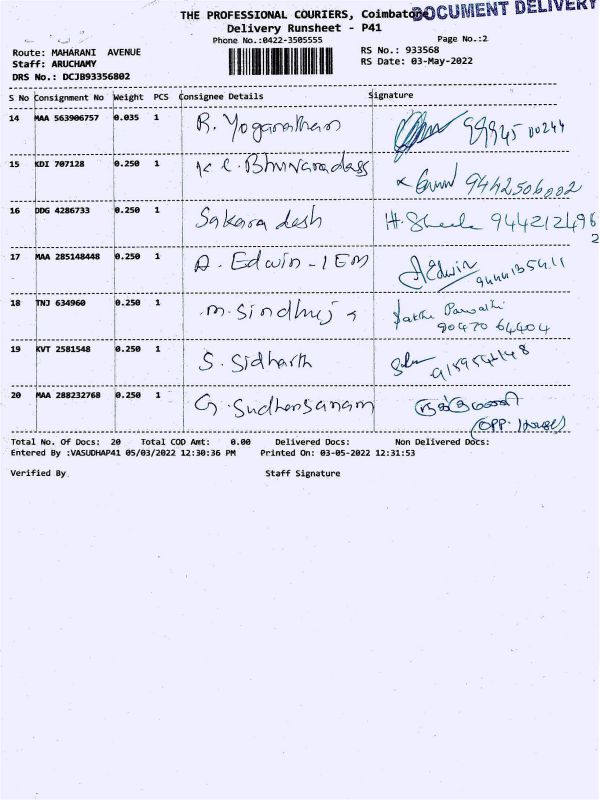 THE PROFESSIONAL COURIERS, Coimbatore
DOCUMENT DELIVERY
Delivery Runsheet - P41
Phone No.:0422-3505555
Page No.:2
Route: MAHARANI AVENUE
RS No.: 933568
Staff: ARUCHAMY
RS Date: 03-May-2022
DRS No.: DCJB93356802
S No Consignment No Weight PCS Consignee Details Signature
14 MAA 563906757 0.035 1 R. Yoganathan
15 KDI 707128 0.250 1 K C. Bhuvanadass 9442506002
16 DDG 4286733 0.250 1 Sakara desh H. Sheela 944212496
2
17 MAA 285148448 0.250 1 A. Edwin - IEM A Edwin
18 TNJ 634960 0.250 1 M. Sindhuja
90470 64404
19 KVT 2581548 0.250 1 S. Sidharth
20 MAA 288232768 0.250 1 G. Sudhersanam
(OPP. House)
Total No. Of Docs: 20 Total COD Amt: 0.00 Delivered Docs: Non Delivered Docs:
Entered By :VASUDHAP41 05/03/2022 12:30:36 PM Printed On: 03-05-2022 12:31:53
Verified By Staff Signature